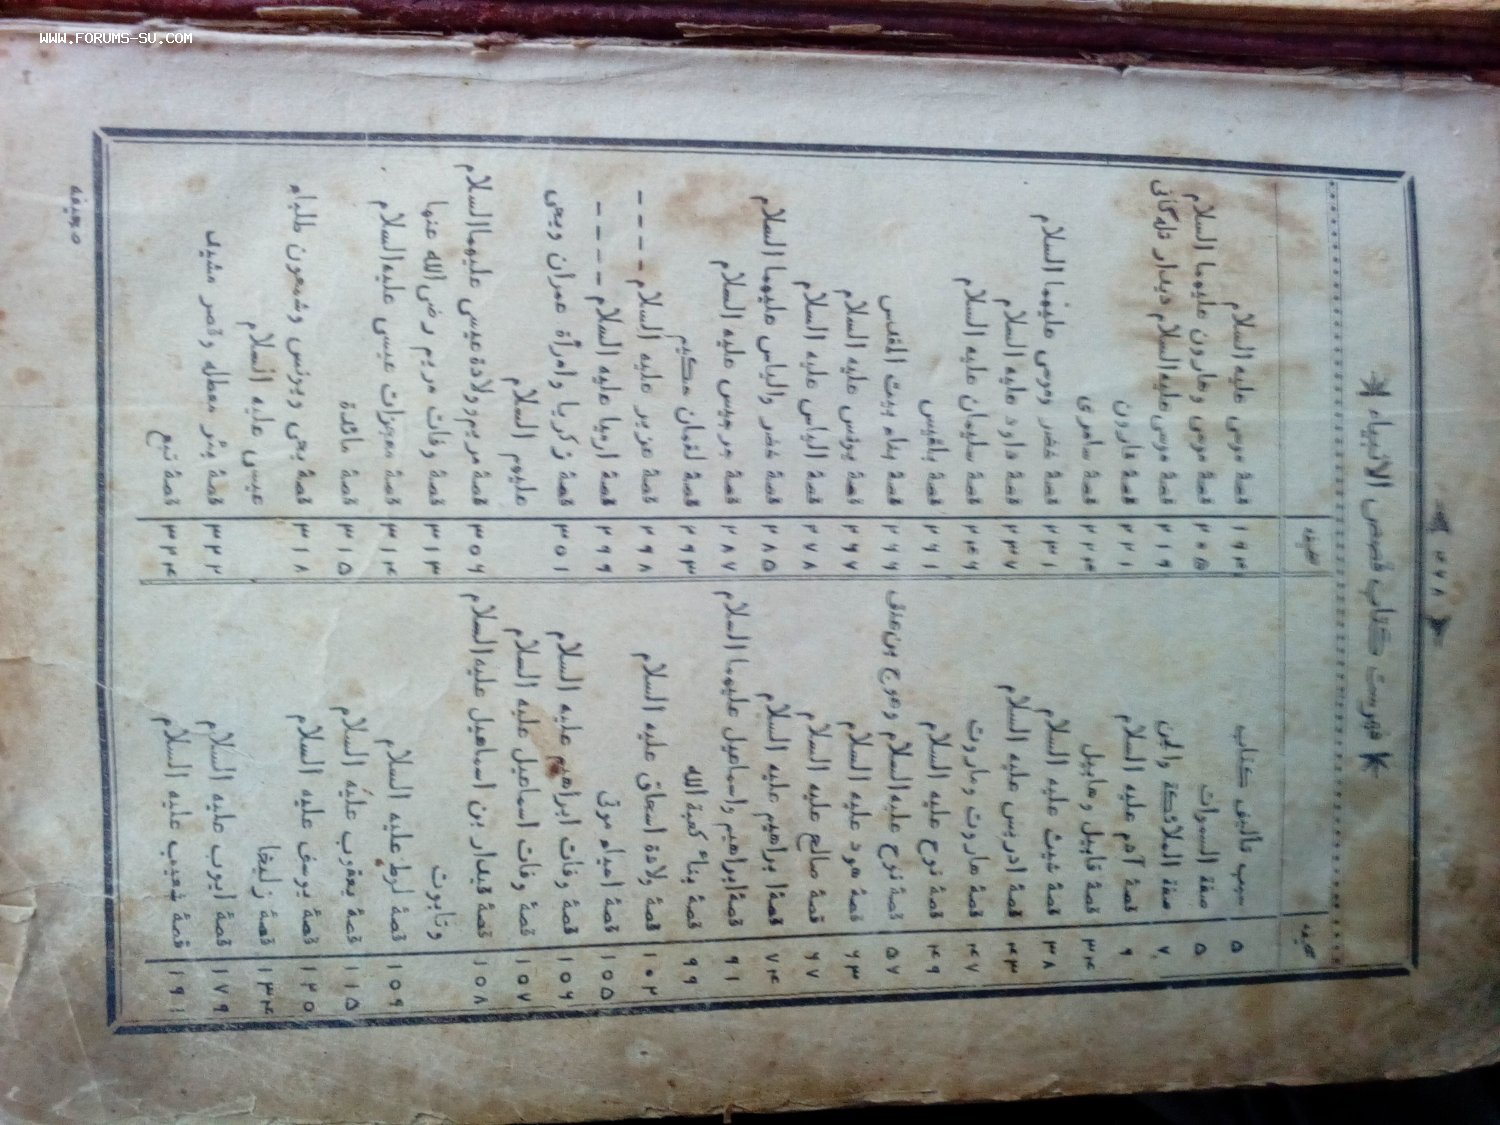 WWW.FORUMS-SU.COM
٤٧٨
فهرست كتاب قصص الانبياء
صحيفه
٥ سبب تأليف كتاب
٥ صفة السموات
٧ صفة الملائكة والجن
٩ قصة آدم عليه السلام
٣٤ قصة قابيل وهابيل
٣٨ قصة شيث عليه السلام
٤٣ قصة ادريس عليه السلام
٤٧ قصة هاروت وماروت
٤٩ قصة نوح عليه السلام
٥٧ قصة نوح عليه السلام وعوج بن عنق
٦٣ قصة هود عليه السلام
٦٧ قصة صالح عليه السلام
٧٤ قصة ابراهيم عليه السلام
٩١ قصة ابراهيم واسماعيل عليهما السلام
٩٩ قصة بناء كعبة الله
١٠٢ قصة ولادة اسحاق عليه السلام
١٥٥ قصة احياء موتى
١٥٦ قصة وفات ابراهيم عليه السلام
١٥٧ قصة وفات اسماعيل عليه السلام
١٥٨ قصة قيدار بن اسماعيل عليه السلام
وتابوت
١٥٩ قصة لوط عليه السلام
١١٥ قصة يعقوب عليه السلام
١٢٥ قصة يوسف عليه السلام
١٣٤ قصة زليخا
١٧٩ قصة ايوب عليه السلام
١٩١ قصة شعيب عليه السلام
صحيفه
١٩٤ قصة موسى عليه السلام
٢٠٥ قصة موسى وهارون عليهما السلام
٢١٩ قصة موسى عليه السلام ديدار
٢٢١ قصة قارون
٢٢٤ قصة سامرى
٢٣١ قصة خضر وموسى عليهما السلام
٢٣٧ قصة داود عليه السلام
٢٤٦ قصة سليمان عليه السلام
٢٦١ قصة بلقيس
٢٦٦ قصة بناء بيت المقدس
٢٦٧ قصة يونس عليه السلام
٢٧٨ قصة الياس عليه السلام
٢٨٥ قصة خضر والياس عليهما السلام
٢٨٧ قصة جرجيس عليه السلام
٢٩٣ قصة لقمان حكيم
٢٩٨ قصة عزير عليه السلام ــ ــ ــ ــ
٢٩٩ قصة ارميا عليه السلام ــ ــ ــ ــ
٣٥١ قصة زكريا وامرأة عمران ويحيى
عليهم السلام
٣٥٦ قصة مريم وولادة عيسى عليهما السلام
٣١٣ قصة وفات مريم رضى الله عنها
٣١٤ قصة معجزات عيسى عليه السلام
٣١٥ قصة مائدة
٣١٨ قصة يحيى ويونس وشمعون
عيسى عليه السلام
٣٢٢ قصة بئر معطله وقصر مشيد
٣٢٤ قصة تبع
صحيفه